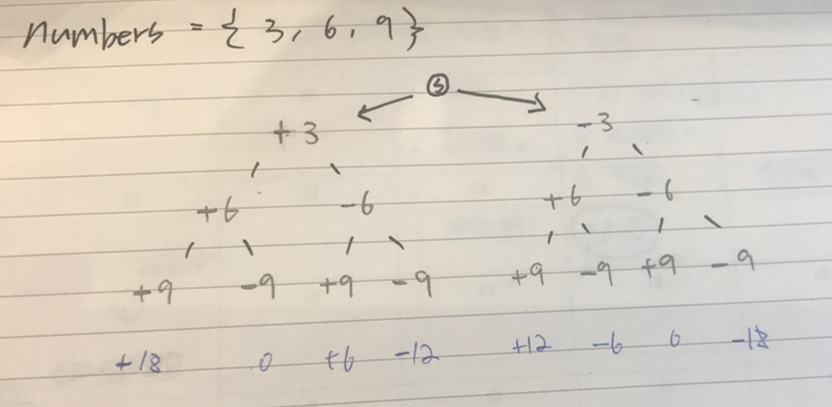 numbers = { 3, 6, 9 }
S
+3 -3
+6 -6 +6 -6
+9 -9 +9 -9 +9 -9 +9 -9
+18 0 +6 -12 +12 -6 0 -18